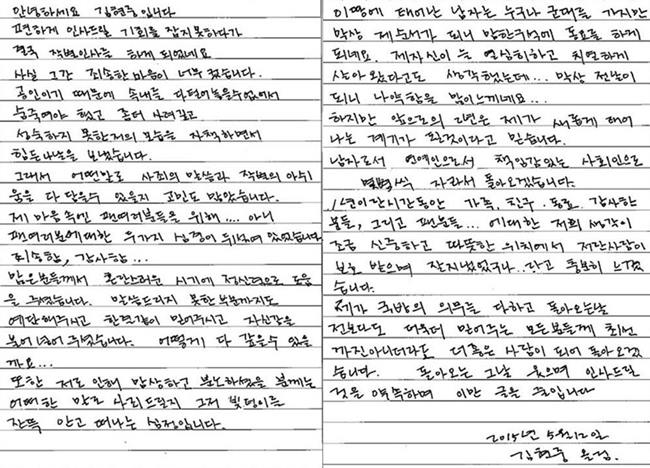 안녕하세요 김현중입니다
편하게 인사드릴 기회를 잡지못하다가
결국 작별인사를 하게 되었네요
사실 그간 죄송한 마음이 너무 컸습니다.
공인이기 때문에 속내를 다 털어놓을수 없어서
숨죽여야 했고 좀더 사려깊고
성숙하지 못한 저의 모습을 자책하면서
힘든나날을 보냈습니다.
그래서 어떤말로 사죄의 말씀과 작별의 아쉬
움을 다 담을수 있을지 고민도 많았습니다.
제 마음속엔 팬여러분들을 위해.... 아니
팬여러분에대한 두가지 심경이 뒤섞여 있었습니다
죄송함, 감사함...
많은분들께서 혼란스러운 시기에 정신적으로 도움
을 주셨습니다. 말씀드리지 못한 부분까지도
예단해주시고 한결같이 믿어주시고 자신감을
불어넣어 주셨습니다. 어떻게 다 갚을수 있을
까요...
또한 저로 인해 망상하고 분노하셨을 분께는
어떠한 말로 사죄드릴지 그저 빚덩이를
잔뜩 안고 떠나는 심정입니다.
이땅에 태어난 남자는 누구나 군대를 가지만
막상 제순서가 되니 막한구석에 동요를 하게
되네요. 제자신이 늘 열심히하고 치열하게
살아왔다고도 생각했는데... 막상 전날이
되니 나약함을 많이느끼네요...
하지만 앞으로의 2년은 제가 새롭게 태어
나는 계기가 될것이라고 믿습니다.
남자로서 연예인으로서 책임감있는 사회인으로
자라서 돌아오겠습니다.
1년이란시간동안 가족, 친구, 동료, 감사한
분들, 그리고 팬분들... 에대한 저의 생각이
조금 신중하고 따뜻한 위치에서 저란사람이
보호 받으며 잘지냈었구나..라고 충분히 느꼈
습니다.
제가 국방의 의무를 다하고 돌아오는날
전보다도 더욱더 믿어주는 모든분들께 최선
까진아니더라도 더 좋은 사람이 되어 돌아오겠
습니다. 돌아오는 그날 웃으며 인사드릴
것을 약속하며 이만 글을 줄입니다
2015년 5월12일
김현중 올림.